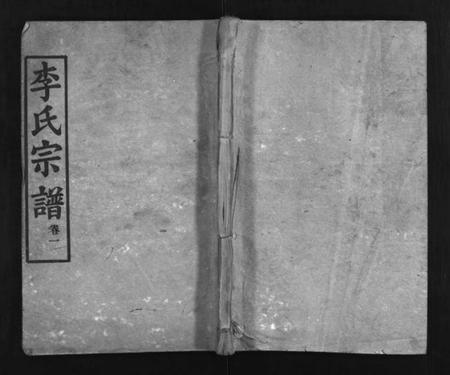 李氏宗譜
卷一